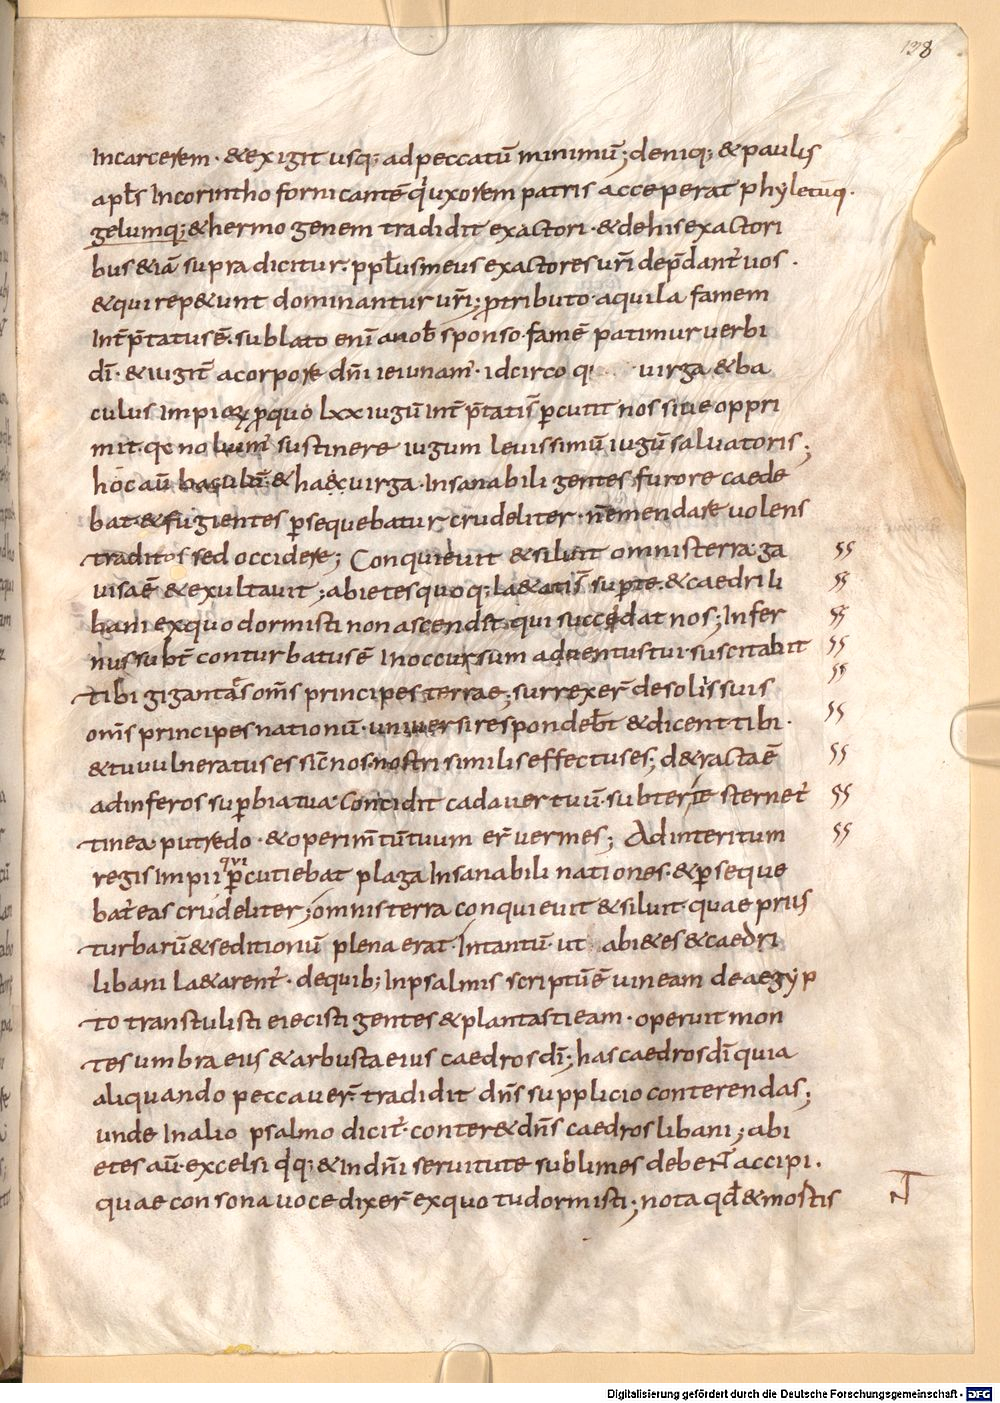 138
Incarcerem · & exigit usq; ad peccatū minimū; deniq; & paulus
apl̄s Incorintho fornicantē q uxorem patris acceperat phyletuq·
gelumq; & hermogenem tradidit exactori · & dehis exactori
bus & iā supra dicitur · ppl̄us meus exactores ur̄i dep̄dant̄ uos ·
& qui rep&unt dominantur ur̄i; p tributo · aquila famem
Int̄p̄tatus ē · sublato enī a nob̄ sponso · famē patimur uerbi
dī · & iugit̄ a corpore dn̄i ieiunam̄ · idcirco q uirga & ba
culus Impioꝝ p quo lxx iugū Int̄p̄tatis̄ p̄cutit nos siue oppri
mit · qc noluim̄ sustinere iugum leuissimū iugū saluatoris;
hoc aū baculū · & haec uirga · Insanabili gentes furore caede
bat · & fugientes p̄sequebatur crudeliter · n̄ emendare uolens
traditos sed occidere; Conquieuit & siluit omnis terra · ga
uisa ē & exultauit; abietes quoq; la&atis̄ sup te · & caedri li
bani exquo dormisti non ascend&t qui succedat nos; Infer
nus subt̄ conturbatus ē In occursum aduentus tui · suscitabit
tibi gigantas om̄s principes terrae; surrexer̄ de solis suis
om̄s principes nationū · uniuersi respondeb̄t & dicent tibi ·
& tu uulneratus es sic̄ nos · nostri similis effectus es; d&racta ē
ad inferos supbia tua · Concidit cadauer tuū · subter te sternet̄
tinea putredo · & operim̄tū tuum er̄ uermes; Ad interitum
regis Impii qui p̄cutiebat plaga Insanabili nationes · & p̄seque
bat̄ eas crudeliter; omnis terra conquieuit & siluit · quae prius
turbarū & seditionū plena erat · Intantū · ut abi&es & caedri
libani la&arent̄ · de quib; In psalmis scriptū ē uineam de aegyp
to transtulisti eiecisti gentes & plantasti eam · operuit mon
tes umbra eius & arbusta eius caedros dī; has caedros dī quia
aliquando peccauer̄ tradidit dn̄s supplicio conterendas;
unde In alio psalmo dicit̄ · conter& dn̄s caedros libani; abi
etes aū · excelsi qq; & In dn̄i seruitute sublimes debent accipi ·
quae consona uoce dixer̄ exquo tu dormisti; nota qd̄ & mostis
Digitalisierung gefördert durch die Deutsche Forschungsgemeinschaft - DFG